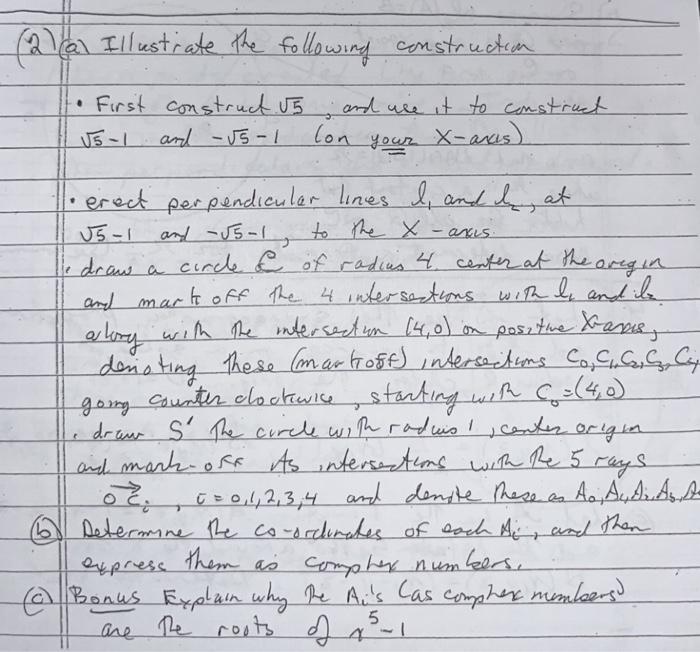 (2) (a) Illustrate the following construction
• First construct √5, and use it to construct
√5-1 and -√5-1 (on your X-axis)
• erect perpendicular lines l₁ and l₂, at
√5-1 and -√5-1, to the X-axis.
• draw a circle C of radius 4 center at the origin
and mark off the 4 intersections with l₁ and l₂
along with the intersection (4,0) on positive X-axis,
denoting these (mark off) intersections C₀, C₁, C₂, C₃, C₄
going counter clockwise, starting with C₀=(4,0)
• draw S' the circle with radius 1, center origin
and mark-off its intersections with the 5 rays
OC⃗ᵢ, i=0,1,2,3,4 and denote these as A₀, A₁, A₂, A₃, A
(b) Determine the co-ordinates of each Aᵢ, and then
express them as complex numbers.
(c) Bonus Explain why the Aᵢ's (as complex numbers)
are the roots of x⁵-1